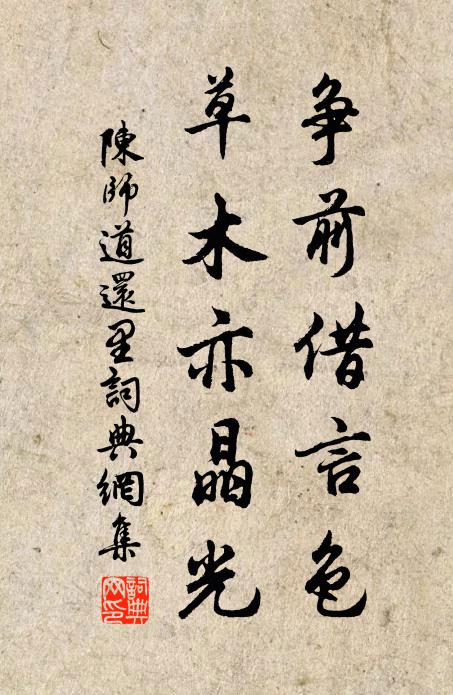 爭前借言色
草木亦晶光
陳師道還里詞典網集
詞典网印